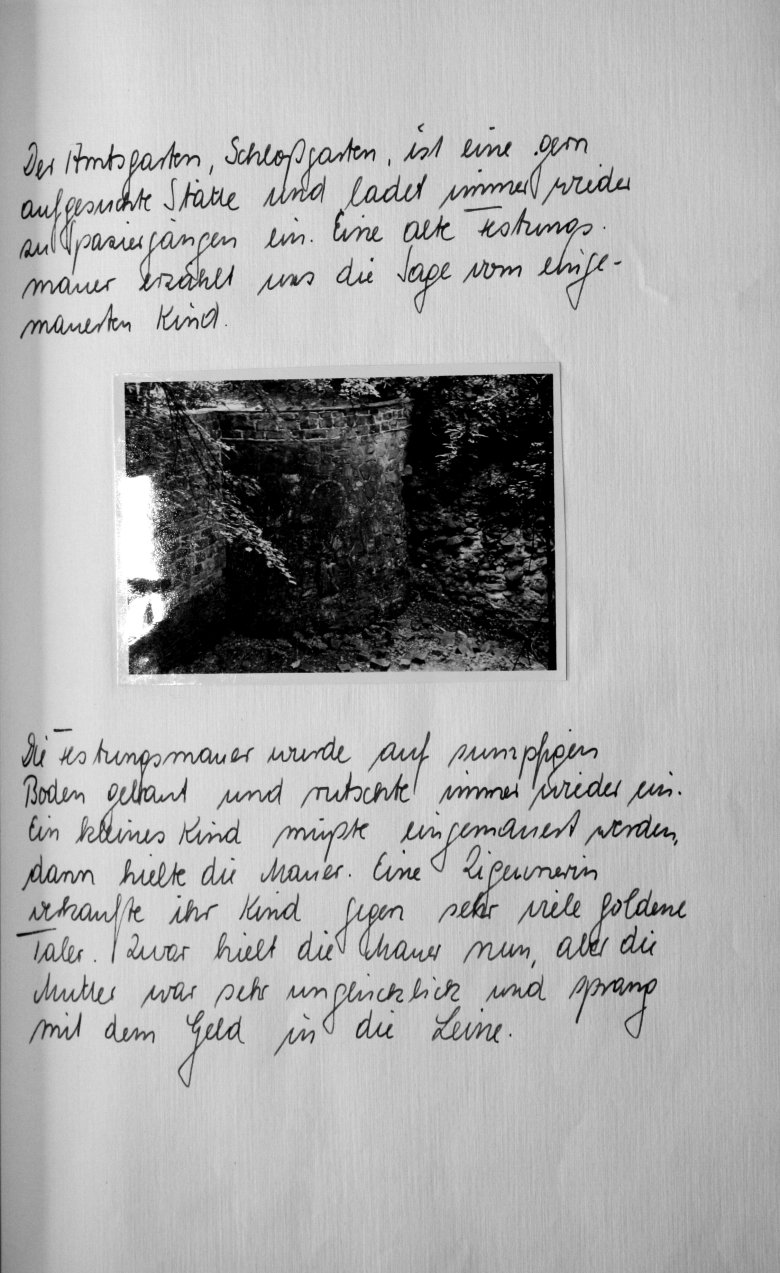 Der Amtsgarten, Schloßgarten, ist eine gern
aufgesuchte Stätte und ladet immer wieder
zu Spaziergängen ein. Eine alte Festungs-
mauer erzählt uns die Sage vom einge-
mauerten Kind.
Die Festungsmauer wurde auf sumpfigen
Boden gebaut und rutschte immer wieder ein.
Ein kleines Kind müßte eingemauert werden,
dann hielte die Mauer. Eine Zigeunerin
verkaufte ihr Kind gegen sehr viele goldene
Taler. Zwar hielt die Mauer nun, aber die
Mutter war sehr unglücklich und sprang
mit dem Geld in die Leine.